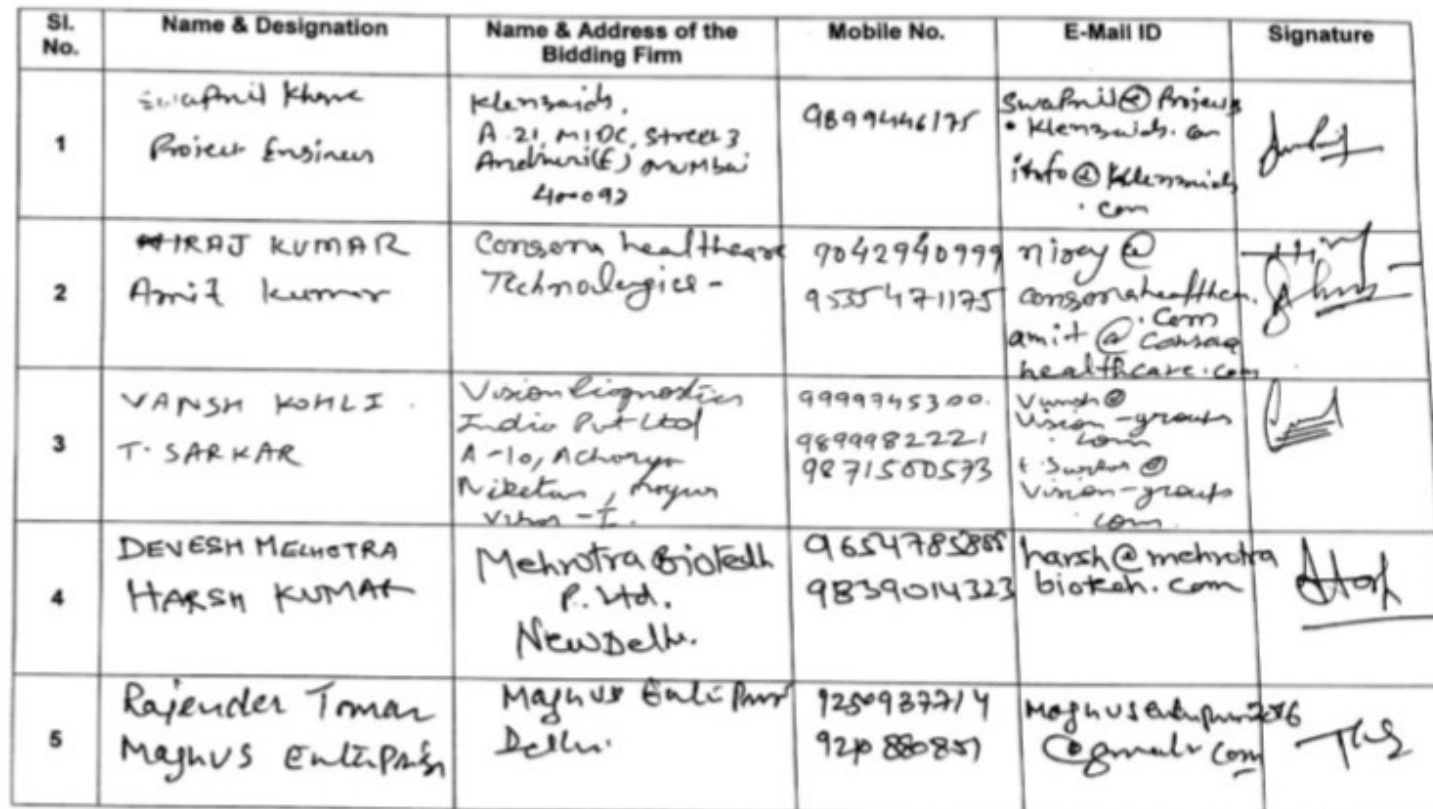 Sl. No.
Name & Designation
Name & Address of the Bidding Firm
Mobile No.
E-Mail ID
Signature
1
Swapnil Khare
Project Engineer
Klenzaids.
A 21, MIDC, Street 3
Andheri(E) Mumbai
400092
9899446175
Swapnil@Projects
.Klenzaids.com
info@Klenzaids
.com
2
NIRAJ KUMAR
Amit Kumar
Consona healthcare
Technologies-
9042940999
9535471175
niraj@
consonahealthcare
.com
amit@
healthcare.com
3
VANSH KOHLI.
T. SARKAR
Vision Diagnostics
India Pvt Ltd
A-10, Acharya
Niketan, Mayur
Vihar-I.
9999945300.
9899982221
9871500573
Vansh@
Vision-groups
.com
t.Sarkar@
Vision-groups
.com
4
DEVESH MEHOTRA
HARSH KUMAR
Mehrotra Biotech
P. Ltd.
New Delhi.
9839014323
harsh@mehrotra
biotech.com
5
Rajender Tomar
Magnus Enterprises
Magnus Enterprises
Delhi.
@gmail.com